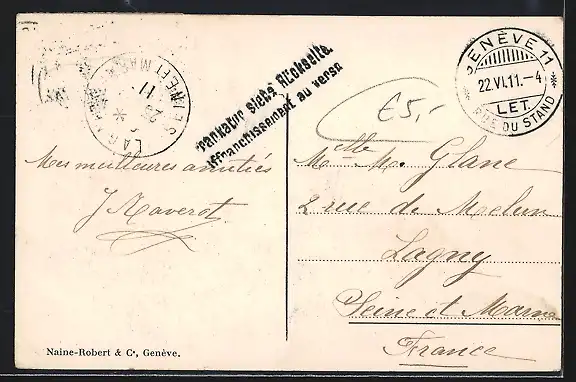 GENÈVE 11
22.VI.11.-4
LET.
RUE DU STAND
LAGNY
SEINE ET MARNE
11
Frankatur siehe Rückseite.
Affranchissement au verso
£5,-
Mes meilleures amitiés
J Raverot
Mlle M. Glane
2 rue de Melun
Lagny
Seine et Marne
France
Naine-Robert & Cº, Genève.